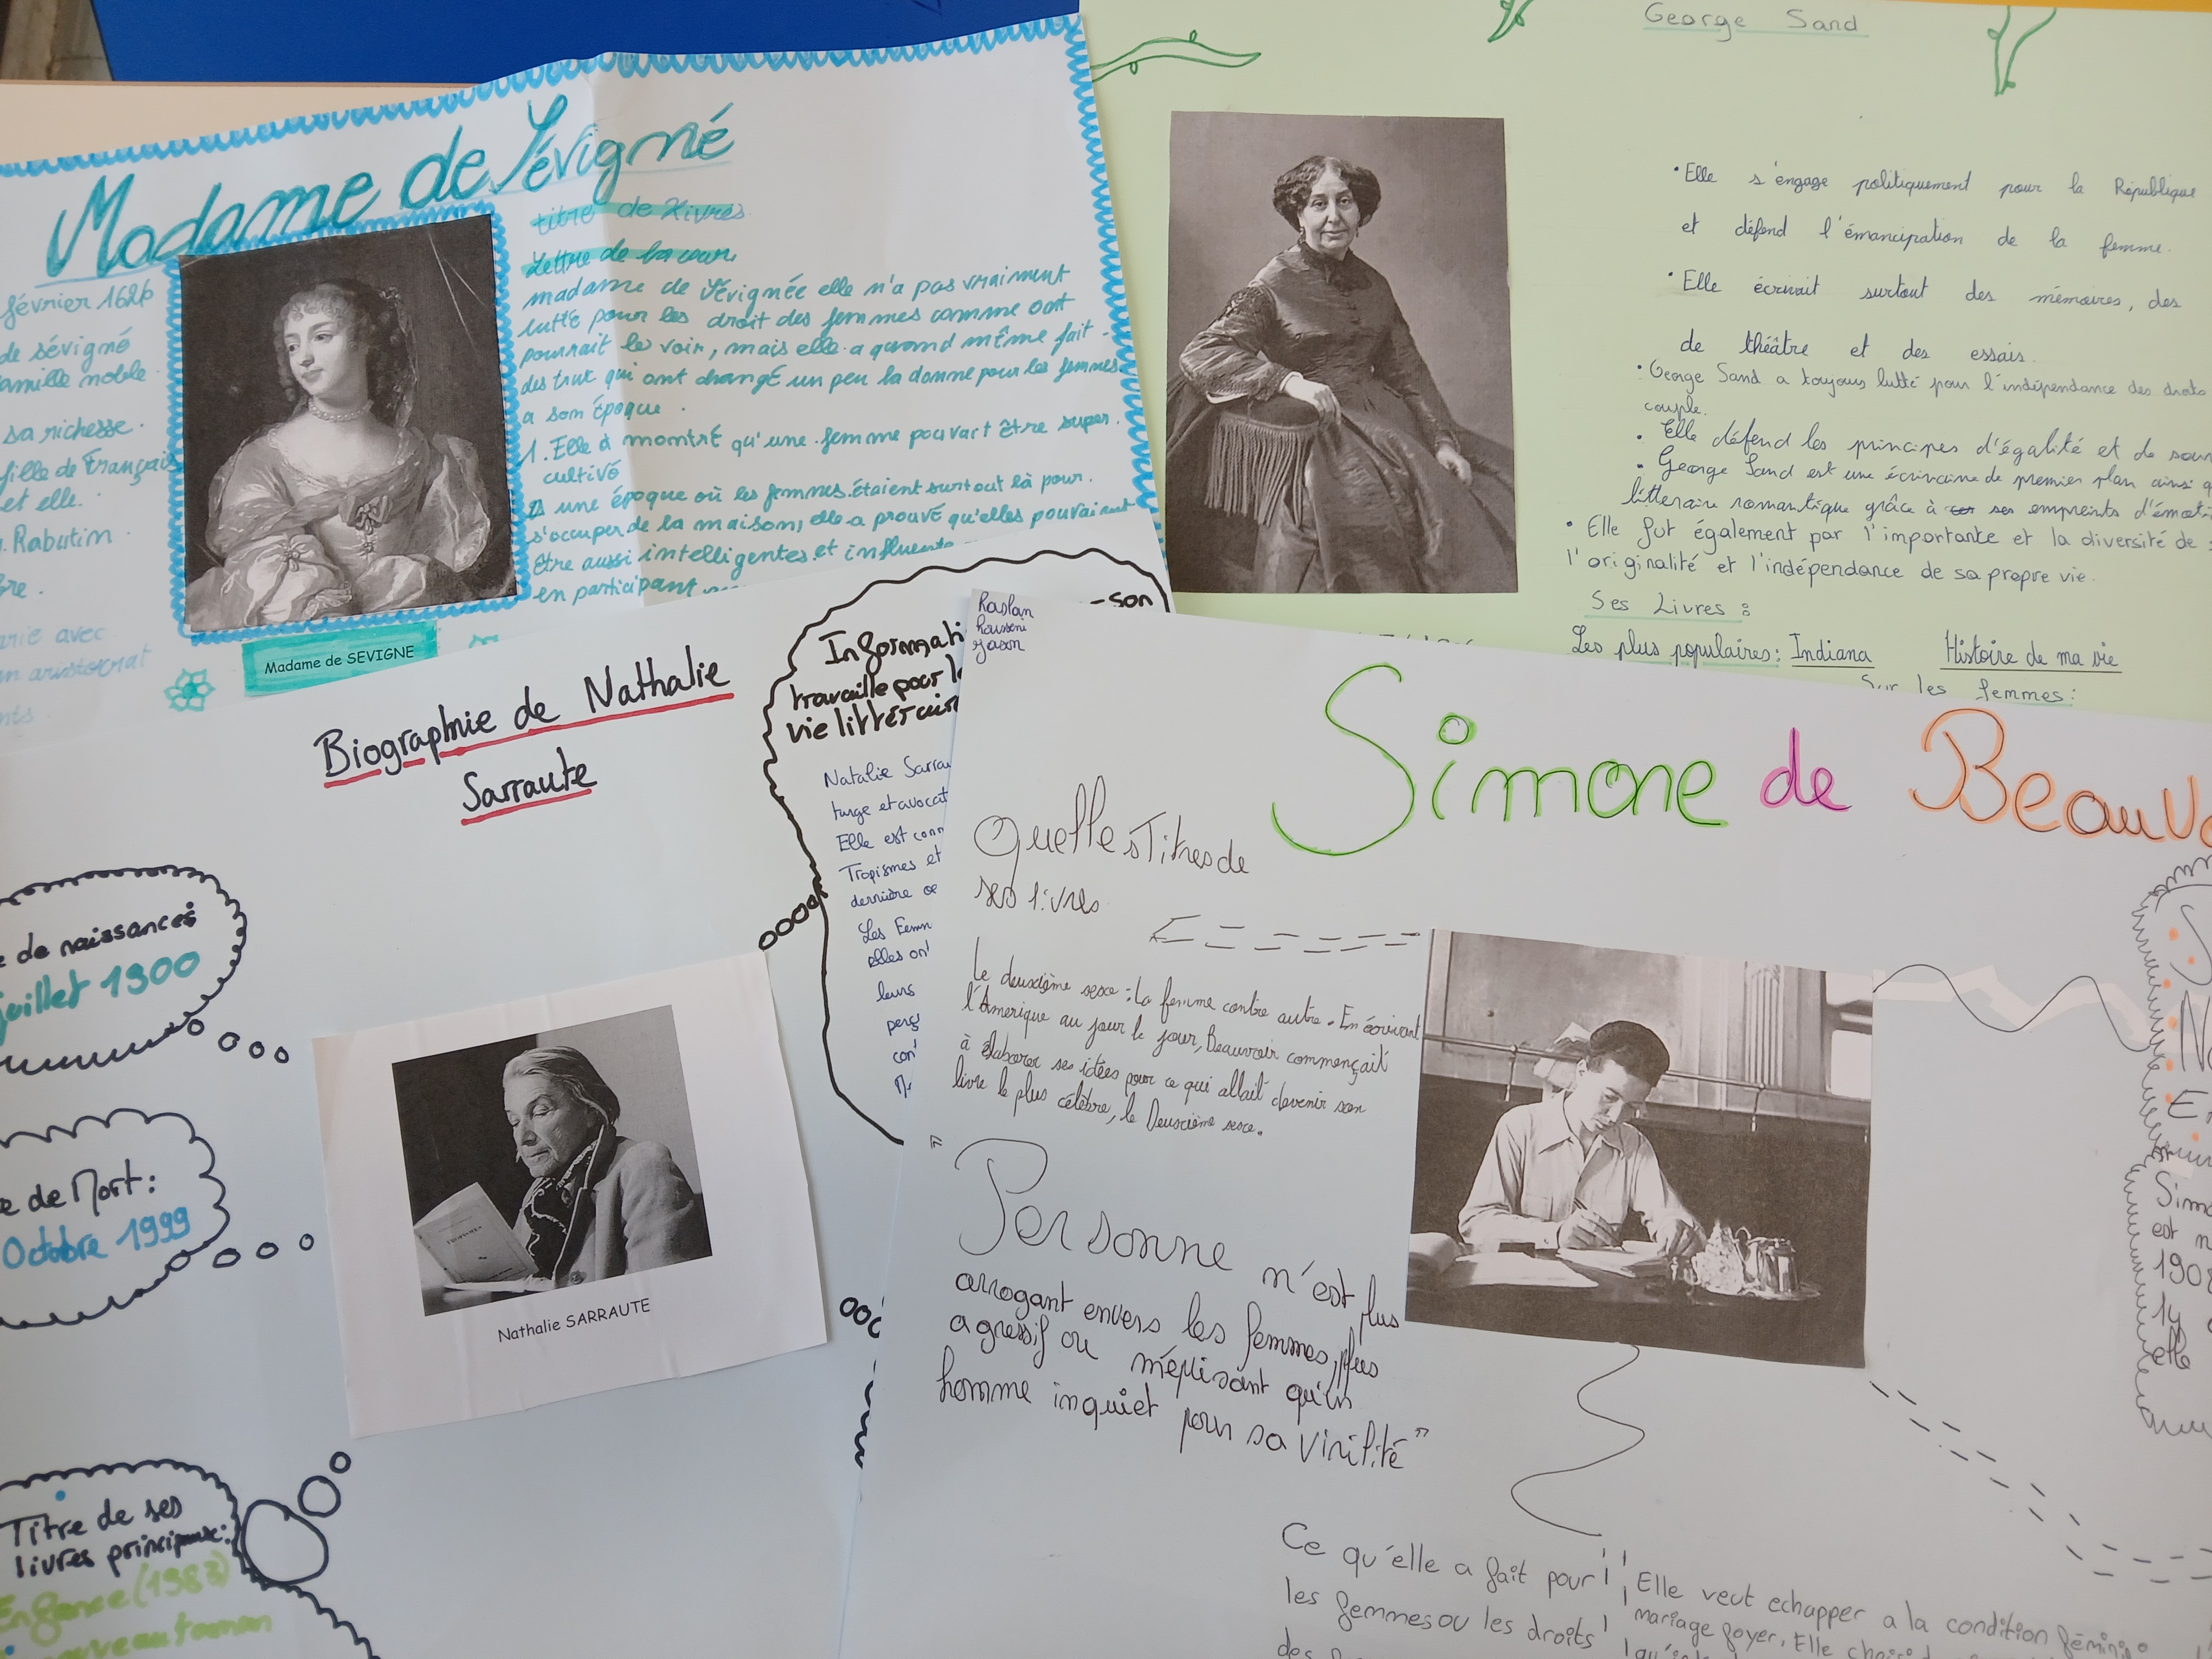 Madame de Sévigné
titre de Livres
Lettre de la cour
madame de Sévignée elle n'a pas vraiment
lutté pour les droit des femmes comme ont
pourrait le voir, mais elle a quand même fait
des truc qui ont changé un peu la donne pour les femmes
a son époque.
1. Elle à montré qu'une femme pouvait être super
cultivé
A une époque où les femmes étaient surtout là pour
s'occuper de la maison, elle a prouvé qu'elles pouvaient
être aussi intelligentes et influente
en participant
février 1626
de sévigné
famille noble
sa richesse.
fille de Français
et elle.
. Rabutin
bre.
arie avec
n aristocrat
nts
Madame de SEVIGNE
George Sand
• Elle s'engage politiquement pour la République
et défend l'émancipation de la femme.
• Elle écrivait surtout des mémoires, des
de théâtre et des essais.
• George Sand a toujours lutté pour l'indépendance des droits
couple.
• Elle défend les principes d'égalité et de
• George Sand est une écrivaine de premier plan ainsi q
litteraire romantique grâce à ses empreints d'émoti
• Elle fut également par l'importante et la diversité de
l'originalité et l'indépendance de sa propre vie.
Ses Livres :
Les plus populaires : Indiana Histoire de ma vie
Sur les femmes :
Biographie de Nathalie
Sarraute
e de naissances
juillet 1900
e de Mort :
Octobre 1999
Titre de ses
livres principaux :
Enfance (1983)
Nathalie SARRAUTE
Informati -son
travaille pour l
vie littérair
Natalie Sarrau
turge et avocat
Elle est conn
Tropismes et
dernière oe
Les Femm
elles on
leurs
perç
con
Raslan
Housseni
Jason
Simone de Beauvo
Quelles Titres de
ses livres
Le deuxième sexe : la femme contre autre. En écrivant
l'Amerique au jour le jour, Beauvoir commençait
à élaborer ses idées pour ce qui allait devenir son
livre le plus célèbre, le Deuxième sexe.
"Personne n'est plus
arrogant envers les femmes, plus
agressif ou méprisant qu'un
homme inquiet pour sa virilité"
Simo
est n
190
elle
Ce qu'elle a fait pour
les femmes ou les droits
des
Elle veut echapper a la condition fémini
mariage foyer. Elle